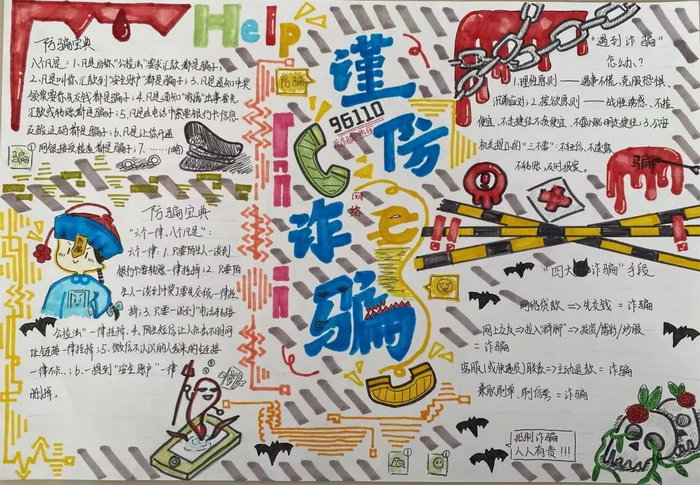 Help
谨防
诈骗
96110
网络
防骗
防骗宝典
八个凡是：1.凡是自称"公检法"要求汇款都是骗子；
2.凡是叫你汇款到"安全账户"都是骗子；3.凡是通知中奖
领奖要你先交钱都是骗子；4.凡是通知"家属"出事要先
汇款或转账都是骗子；5.凡是在电话中索要银行卡信息
及验证码都是骗子；6.凡是让你开通
网银接受检查都是骗子；7.……(略)
骗
防骗宝典
"六个一律，八个凡是"：
六个一律：1.只要陌生人一谈到
银行卡要转账一律挂掉；2.只要陌
生人一谈到中奖了要先交钱一律挂
掉；3.只要一谈到"电话转接
公检法"一律挂掉；4.陌生短信让人点击不明网
址链接一律挂掉；5.微信不认识的人发来的链接
一律不点；6.一提到"安全账户"一律
删掉。
"遇到诈骗"
怎么办？
1.理性原则——遇事不慌，克服恐惧、
沉着应对；2.
原则——战胜贪念、不捡
便宜
骗
"四大诈骗"手段
网络贷款 => 先交钱 = 诈骗
网上交友 => 拉入"群聊" => 投资/博彩/炒股
= 诈骗
客服(或快递员)联系 => 主动退款 = 诈骗
兼职刷单、刷信誉 = 诈骗
抵制诈骗
人人有责！！！